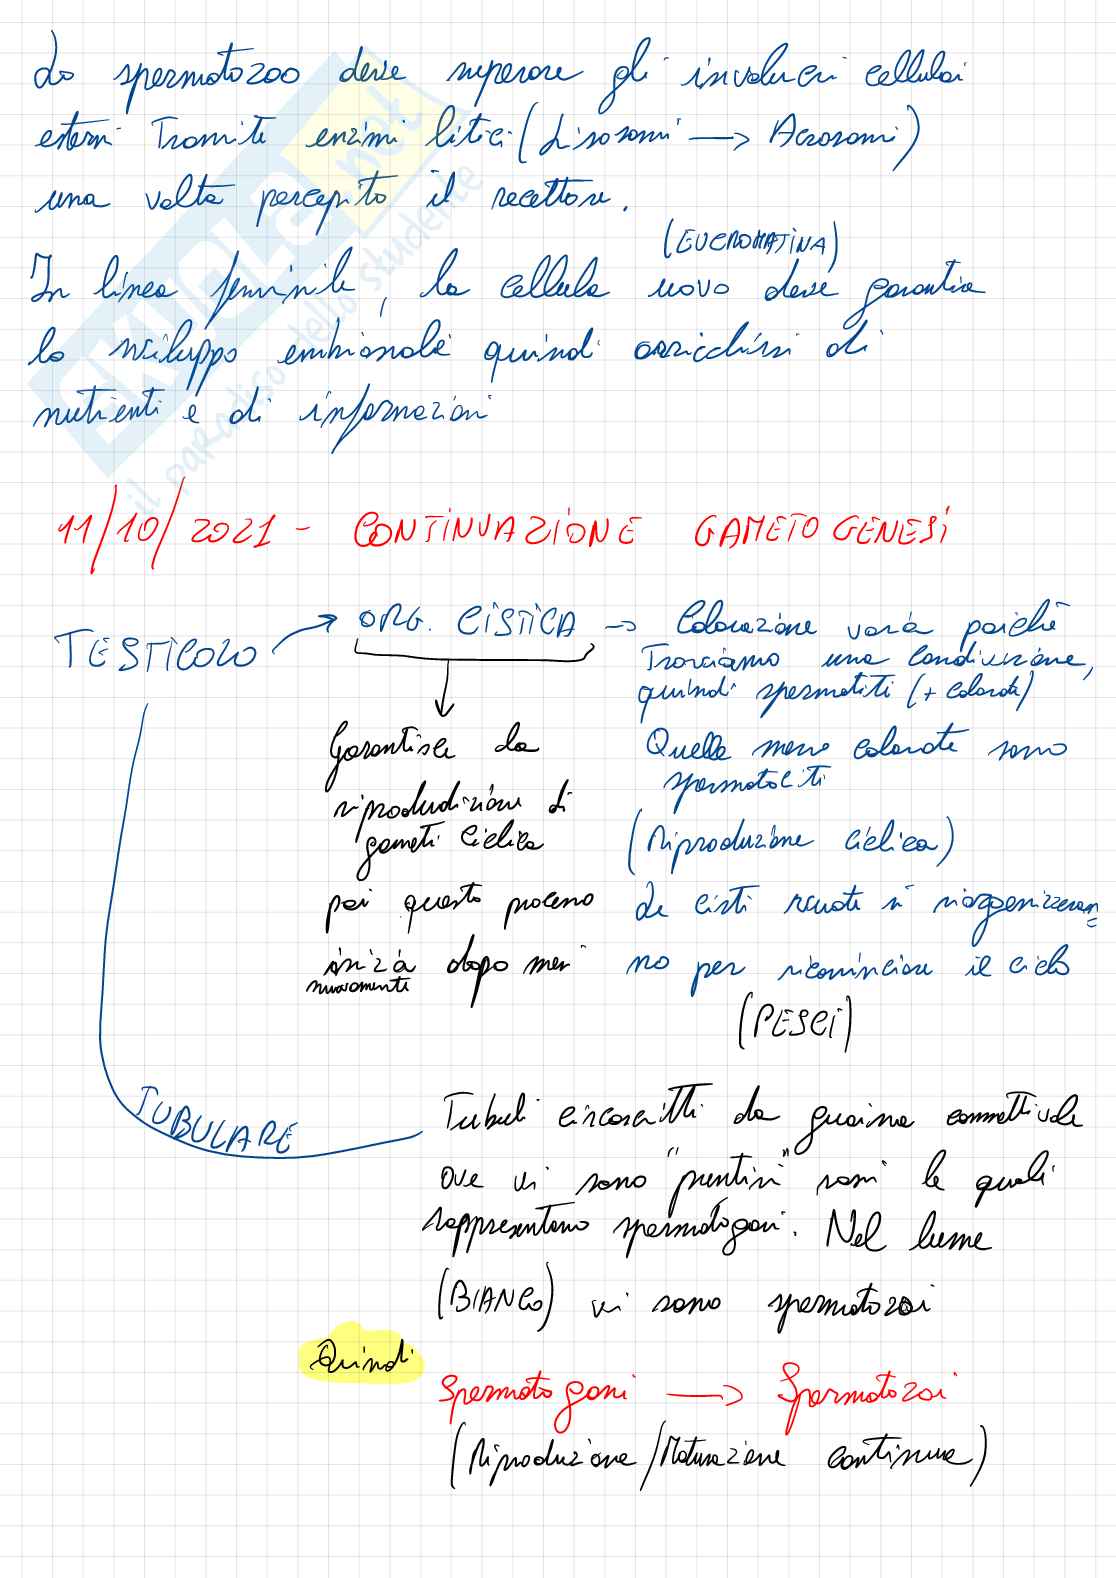 Lo spermatozoo deve superare gli involucri cellulari
esterni tramite enzimi litici (Lisosomi → Acrosomi)
una volta percepito il recettore.
(EUCROMATINA)
In linea femminile, la cellula uovo deve garantire
lo sviluppo embrionale quindi arricchirsi di
nutrienti e di informazioni
SKUOLA.net
il paradiso dello studente
11/10/2021 - CONTINUAZIONE GAMETOGENESI
TESTICOLO → ORG. CISTICA → Colorazione varia poiché
troviamo una condivisione,
quindi spermatiti (+ colorate)
Garantisce la
riproduzione di
gameti ciclica
poi questo processo
inizia dopo mesi
nuovamente
Quelle meno colorate sono
spermatociti
(Riproduzione ciclica)
Le cisti vuote si riorganizzeran
no per ricominciare il ciclo
(PESCI)
TUBULARE
Tubuli circoscritti da guaina connettivale
ove vi sono "puntini" rosa le quali
rappresentano spermatogoni. Nel lume
(BIANCO) vi sono spermatozoi
Quindi
Spermatogoni → Spermatozoi
(Riproduzione/Maturazione continua)